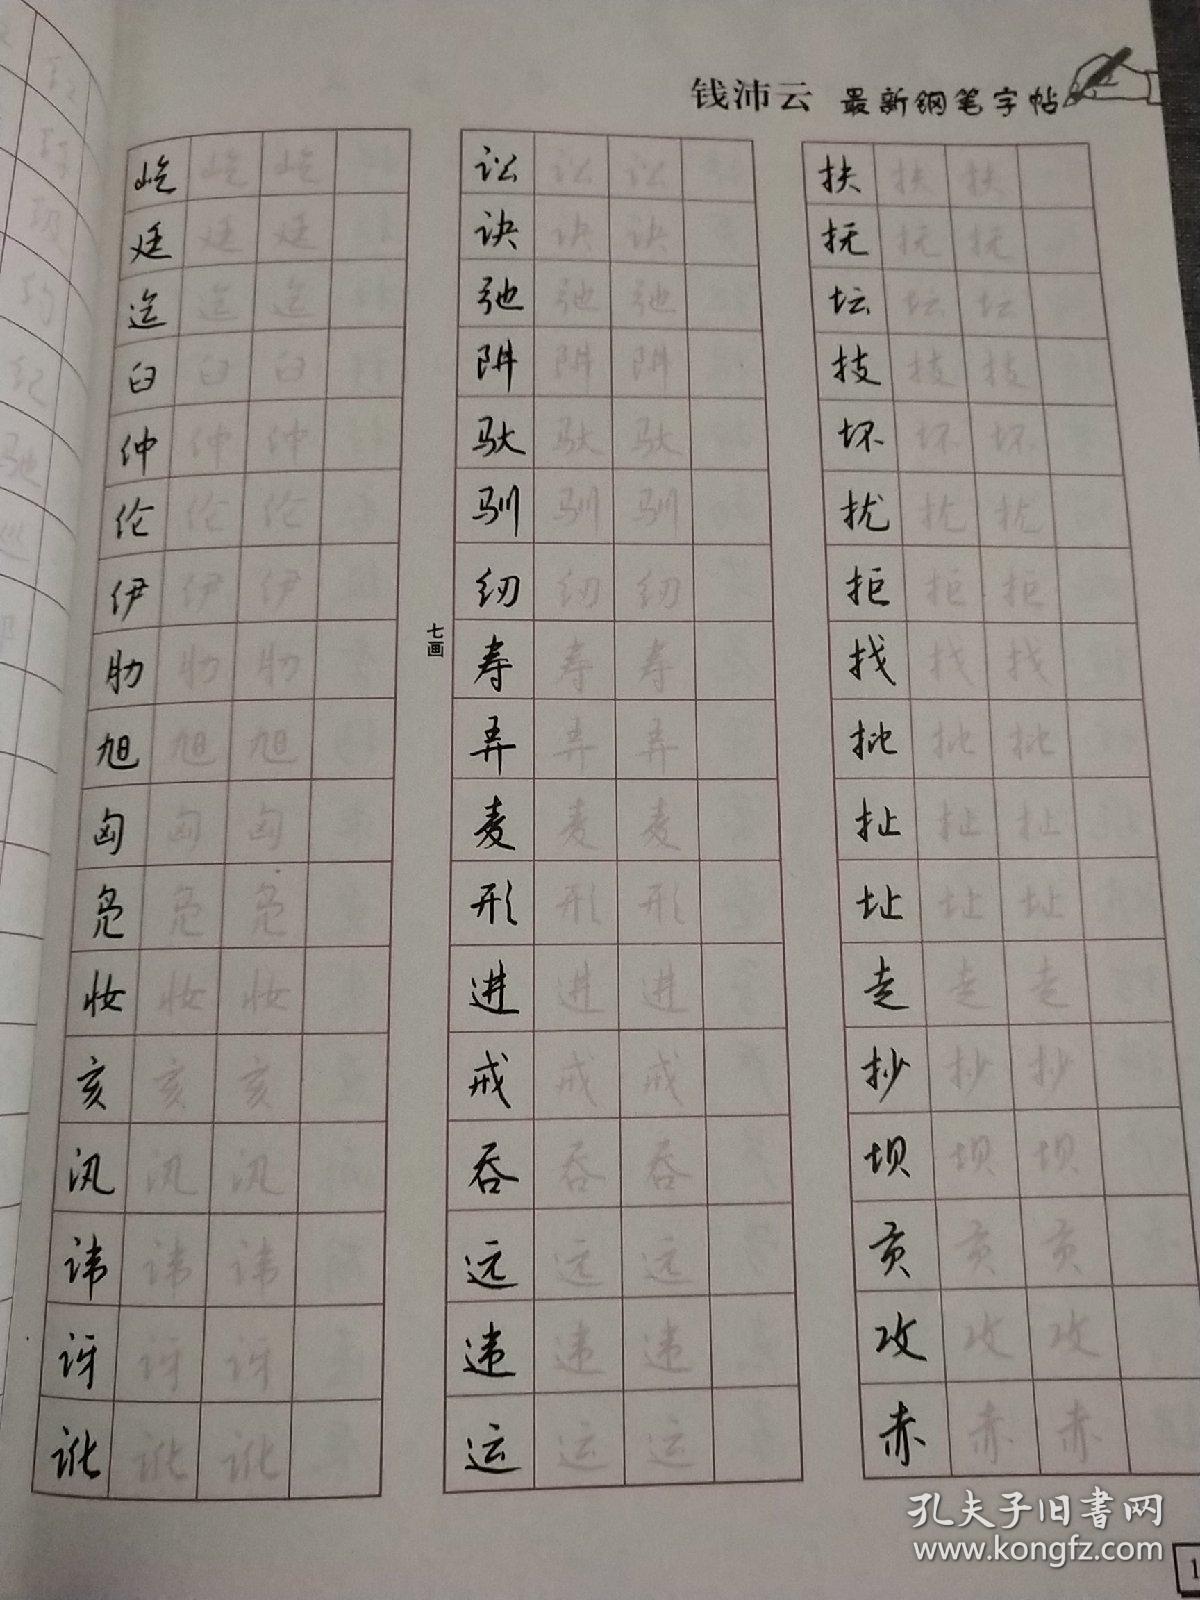 钱沛云 最新钢笔字帖
屹 屹 屹
廷 廷 廷
迄 迄 迄
臼 臼 臼
仲 仲 仲
伦 伦 伦
伊 伊 伊
肋 肋 肋
旭 旭 旭
匈 匈 匈
凫 凫 凫
妆 妆 妆
亥 亥 亥
汛 汛 汛
讳 讳 讳
讶 讶 讶
讹 讹 讹
讼 讼 讼
诀 诀 诀
弛 弛 弛
阱 阱 阱
驮 驮 驮
驯 驯 驯
纫 纫 纫
七画
寿 寿 寿
弄 弄 弄
麦 麦 麦
形 形 形
进 进 进
戒 戒 戒
吞 吞 吞
远 远 远
违 违 违
运 运 运
扶 扶 扶
抚 抚 抚
坛 坛 坛
技 技 技
坏 坏 坏
扰 扰 扰
拒 拒 拒
找 找 找
批 批 批
扯 扯 扯
址 址 址
走 走 走
抄 抄 抄
坝 坝 坝
贡 贡 贡
攻 攻 攻
赤 赤 赤
孔夫子旧书网
www.kongfz.com